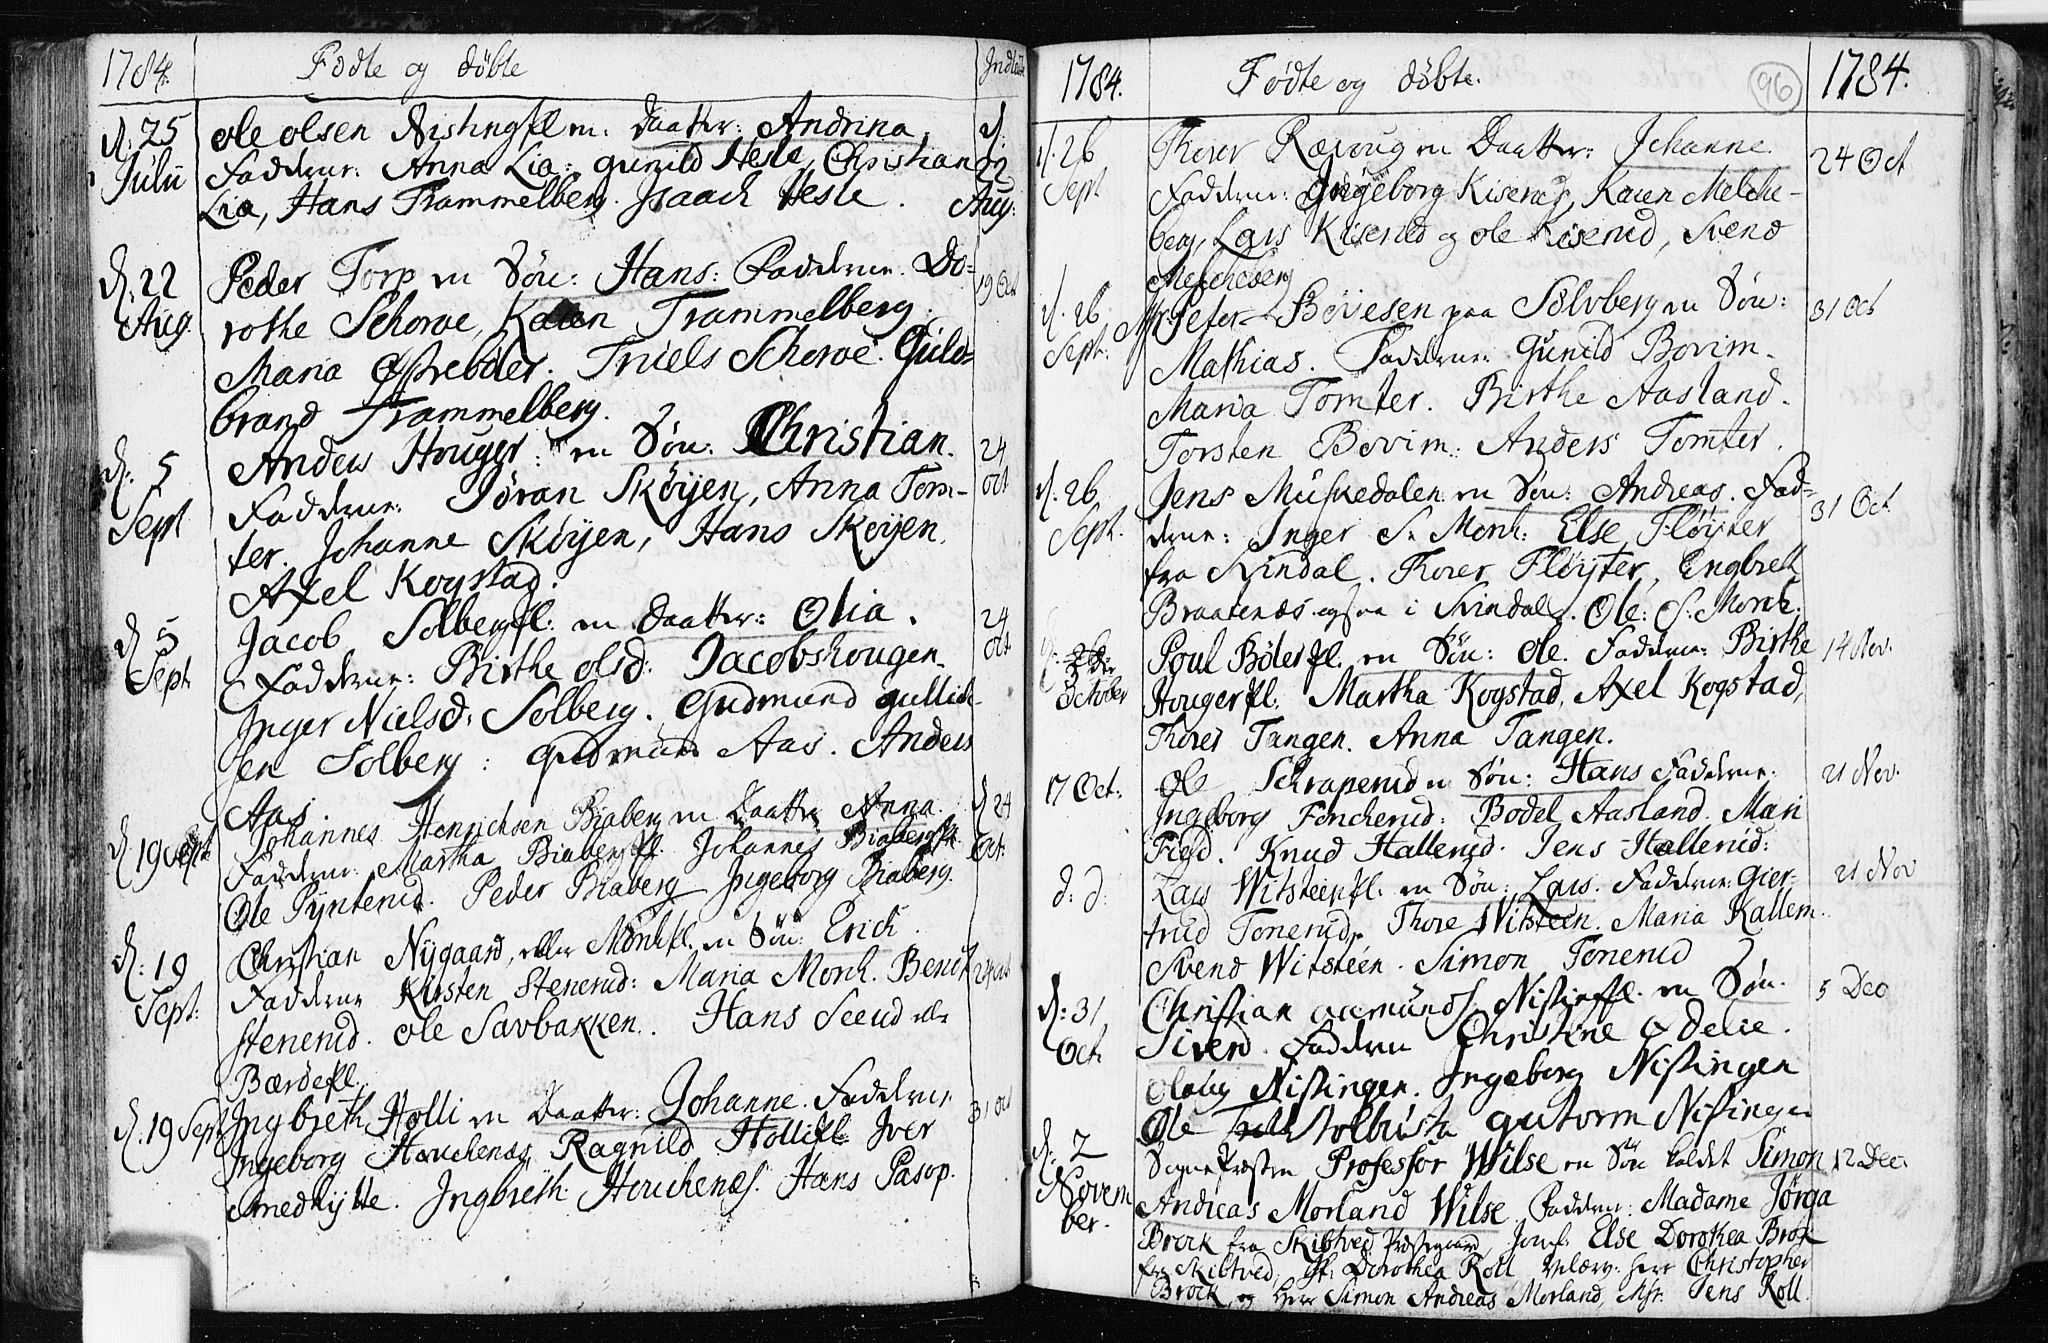 1784.
Födte og döbte
d: 25 Julii
Ole Olsen Nistingfl en Daatter: Andrina.
Fadderne: Anna Lia: Gunild Hesle, Christian
Lia, Hans Trammelberg. Isaach Hesle.
d. 22 Aug:
d: 22 Aug.
Peder Torp en Sön: Hans: Fadderne. Do-
rothe Schorve, Karen Trammelberg.
Maria Östreböler. Truels Schorve. Guld-
brand Trammelberg.
19 Oct
d: 5 Sept
Anders Houger: en Sön: Christian.
Fadderne: Jöran Sköyen, Anna Tom-
ter. Johanne Sköyen, Hans Sköyen.
Axel Kogstad.
24 oct
d 5 Sept
Jacob Solbergfl: en Daatter: Olia.
Fadderne: Birthe Olsd: Jacobshougen.
Inger Nielsd: Solberg. Gudmund Gullich-
sen Solberg: Gudmund Aas. Anders
Aas
24 oct
d 19 Sept
Johannes Henrichsen Biaberg en Daatter Anna.
Fadderne: Martha Biabergfl. Johannes Biabergfl.
Ole Pynterud. Peder Biaberg Ingeborg Biaberg.
d 24 Oct:
d: 19 Sept:
Christian Nygaard, eller Mönkfl. en Sön: Erich.
Fadderne Kirsten Stenerud: Maria Monk. Bendt
Stenerud. Ole Savbakken. Hans Sceud eller
Bærdefl.
24 oct
d: 19 Sept
Ingbreth Holli en Daatter: Johanne. Fadderne
Ingeborg Houchenæs Ragnild Hollifl Iver
Smedhytte. Ingbreth Houchenæs. Hans Pasop.
31 oct
1784.
Födte og döbte.
96
1784.
d. 26 Sept
Thorer Rævoug en Daatter: Johanne.
Fadderne: Ingeborg Kiserud, Karen Melche-
berg, Lars Kiserud og Ole Kiserud, Svend
Melcheberg
24 Oct
d. 26 Sept:
Mr. Peter Bovesen paa Sölvberg en Sön:
Mathias. Fadderne: Gunild Bovim.
Maria Tomter. Birthe Aasland.
Torsten Bovim: Anders Tomter.
31 Oct
d. 26 Sept.
Jens Muskedalen en Sön: Andreas. Fad-
derne: Inger S. Monk: Else Flöyter
fra Svindal. Thorer Flöyter, Engbrett
Braatenæs ogsaa i Svindal. Ole: S: Monk.
31 Oct
October
Poul Bölerfl. en Sön: Ole. Fadderne: Birthe
Hougerfl. Martha Kogstad, Axel Kogstad,
Thorer Tangen. Anna Tangen.
14 Nov.
17 Oct:
Ole Schraperud en Sön: Hans Fadderne:
Ingeborg Foncherud: Bodel Aasland. Mari
Field. Knud Hallerud. Jens Hallerud:
21 Nov.
d: d:
Lars Witsteenfl: en Sön: Lars. Fadderne: Gier-
trud Tonerud, Thore Witsteen. Maria Kallem.
Svend Witsteen. Simon Tonerud
21 Nov
d: 31 Oct.
Christian Aamunds. Nistingfl. en Sön.
Siverd. Fadderne Christine Ödelie.
Oloug Nistingen. Ingeborg Nistingen
Ole Stolbusk Gutorm Nistingen
5 Dec
d: 2 November.
SognePræsten Professor Wilse en Sön kaldet Simon
Andreas Morland Wilse. Fadderne: Madame Jörga
Brock fra Skibtved Præstegaard, Jomf: Else Dorothea Brok
fra Skibtved, Dorothea Roll Velærv: Herr Christopher
Brock, og Herr Simon Andreas Morland, Msr. Jens Roll.
12 Dec: